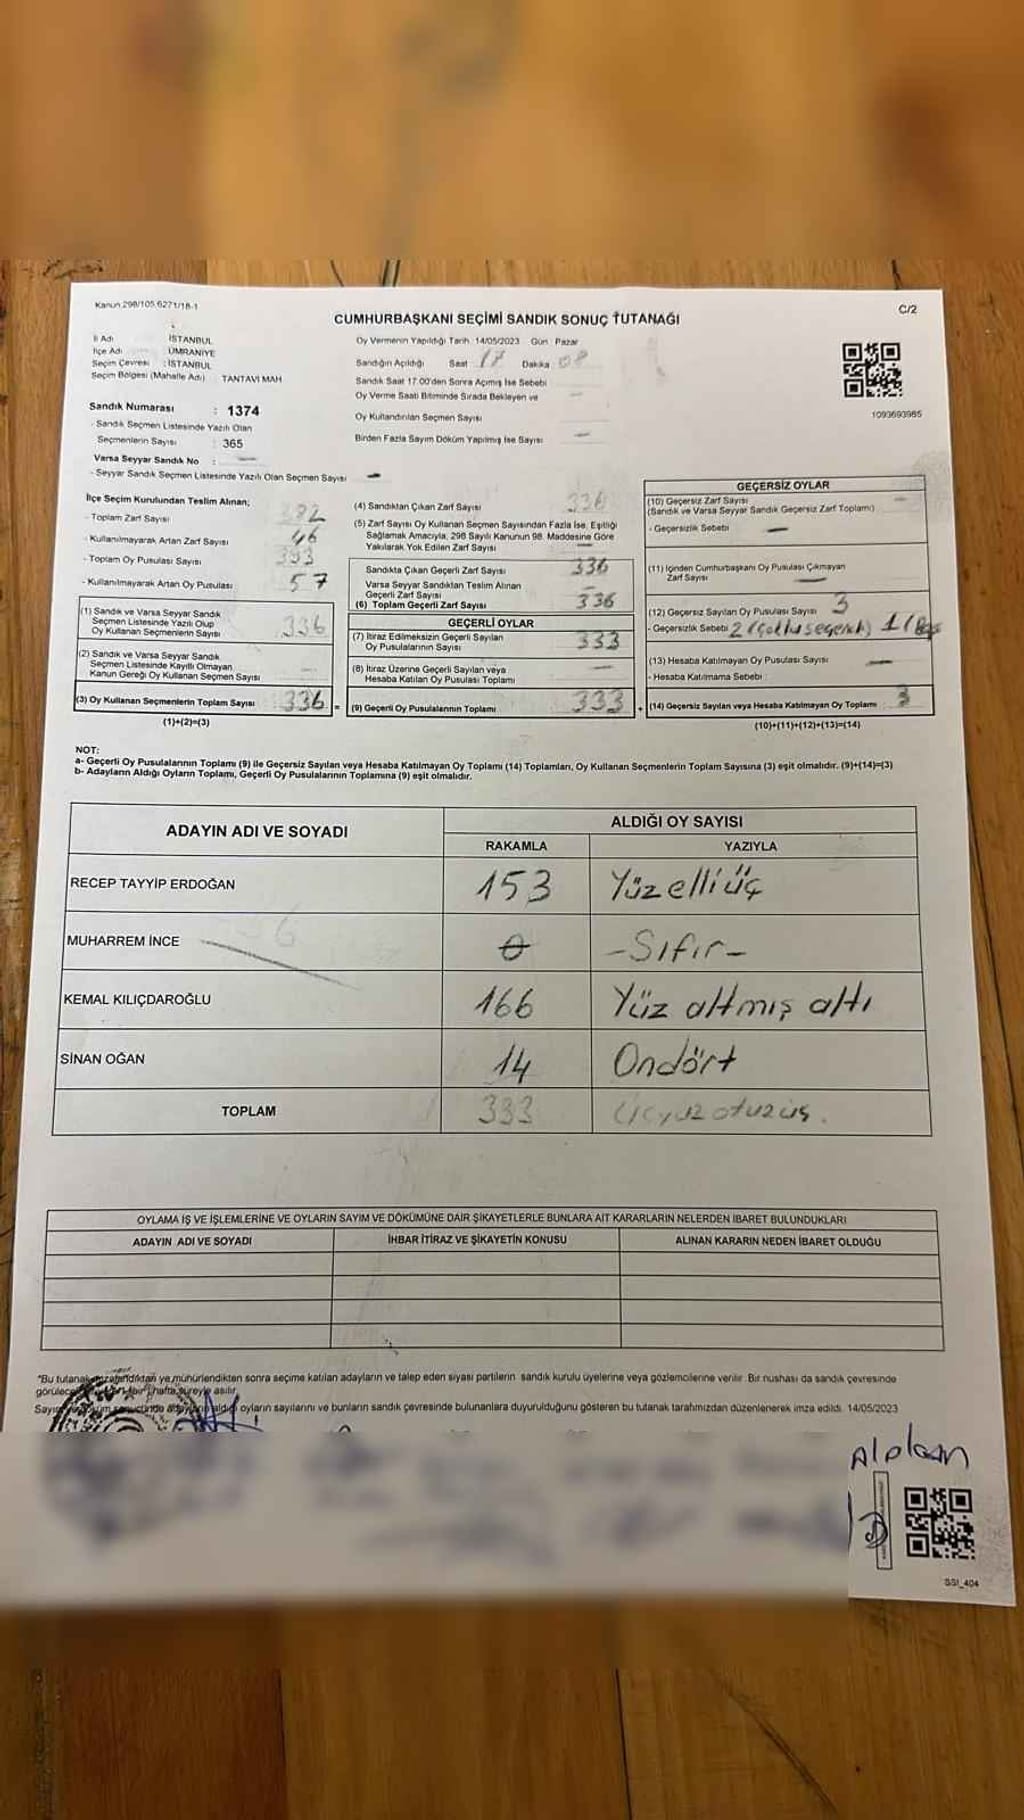 Kanun 298/105,6271/18-1
C/2
CUMHURBAŞKANI SEÇİMİ SANDIK SONUÇ TUTANAĞI
İl Adı İSTANBUL
İlçe Adı ÜMRANİYE
Seçim Çevresi : İSTANBUL
Seçim Bölgesi (Mahalle Adı) TANTAVİ MAH
Sandık Numarası : 1374
- Sandık Seçmen Listesinde Yazılı Olan
Seçmenlerin Sayısı : 365
Varsa Seyyar Sandık No : —
- Seyyar Sandık Seçmen Listesinde Yazılı Olan Seçmen Sayısı —
Oy Vermenin Yapıldığı Tarih 14/05/2023 Gün : Pazar
Sandığın Açıldığı Saat 17 Dakika 08
Sandık Saat 17.00'den Sonra Açımış İse Sebebi
Oy Verme Saati Bitiminde Sırada Bekleyen ve —
Oy Kullandırılan Seçmen Sayısı
Birden Fazla Sayım Döküm Yapılmış İse Sayısı —
1093693985
İlçe Seçim Kurulundan Teslim Alınan;
- Toplam Zarf Sayısı 382
- Kullanılmayarak Artan Zarf Sayısı 46
- Toplam Oy Pusulası Sayısı 393
- Kullanılmayarak Artan Oy Pusulası 57
(1) Sandık ve Varsa Seyyar Sandık
Seçmen Listesinde Yazılı Olup
Oy Kullanan Seçmenlerin Sayısı 336
(2) Sandık ve Varsa Seyyar Sandık
Seçmen Listesinde Kayıtlı Olmayan
Kanun Gereği Oy Kullanan Seçmen Sayısı —
(3) Oy Kullanan Seçmenlerin Toplam Sayısı 336 =
(1)+(2)=(3)
(4) Sandıktan Çıkan Zarf Sayısı 336
(5) Zarf Sayısı Oy Kullanan Seçmen Sayısından Fazla İse, Eşitliği
Sağlamak Amacıyla, 298 Sayılı Kanunun 98. Maddesine Göre
Yakılarak Yok Edilen Zarf Sayısı —
Sandıkta Çıkan Geçerli Zarf Sayısı 336
Varsa Seyyar Sandıktan Teslim Alınan
Geçerli Zarf Sayısı —
(6) Toplam Geçerli Zarf Sayısı 336
GEÇERLİ OYLAR
(7) İtiraz Edilmeksizin Geçerli Sayılan
Oy Pusulalarının Sayısı 333
(8) İtiraz Üzerine Geçerli Sayılan veya
Hesaba Katılan Oy Pusulası Toplamı —
(9) Geçerli Oy Pusulalarının Toplamı 333 +
GEÇERSİZ OYLAR
(10) Geçersiz Zarf Sayısı —
(Sandık ve Varsa Seyyar Sandık Geçersiz Zarf Toplamı)
- Geçersizlik Sebebi —
(11) İçinden Cumhurbaşkanı Oy Pusulası Çıkmayan
Zarf Sayısı —
(12) Geçersiz Sayılan Oy Pusulası Sayısı 3
- Geçersizlik Sebebi 2 1
(13) Hesaba Katılmayan Oy Pusulası Sayısı —
- Hesaba Katılmama Sebebi
(14) Geçersiz Sayılan veya Hesaba Katılmayan Oy Toplamı 3
(10)+(11)+(12)+(13)=(14)
NOT:
a- Geçerli Oy Pusulalarının Toplamı (9) ile Geçersiz Sayılan veya Hesaba Katılmayan Oy Toplamı (14) Toplamları, Oy Kullanan Seçmenlerin Toplam Sayısına (3) eşit olmalıdır. (9)+(14)=(3)
b- Adayların Aldığı Oyların Toplamı, Geçerli Oy Pusulalarının Toplamına (9) eşit olmalıdır.
ADAYIN ADI VE SOYADI
ALDIĞI OY SAYISI
RAKAMLA YAZIYLA
RECEP TAYYİP ERDOĞAN 153 Yüzelliüç
MUHARREM İNCE 0 -Sıfır-
KEMAL KILIÇDAROĞLU 166 Yüz altmış altı
SİNAN OĞAN 14 Ondört
TOPLAM 333 Üçyüzotuzüç.
OYLAMA İŞ VE İŞLEMLERİNE VE OYLARIN SAYIM VE DÖKÜMÜNE DAİR ŞİKAYETLERLE BUNLARA AİT KARARLARIN NELERDEN İBARET BULUNDUKLARI
ADAYIN ADI VE SOYADI İHBAR İTİRAZ VE ŞİKAYETİN KONUSU ALINAN KARARIN NEDEN İBARET OLDUĞU
"Bu tutanak ve mühürlendikten sonra seçime katılan adayların ve talep eden siyasi partilerin sandık kurulu üyelerine veya gözlemcilerine verilir. Bir nushası da sandık çevresinde
hafta süreyle asılır.
oyların sayılarını ve bunların sandık çevresinde bulunanlara duyurulduğunu gösteren bu tutanak tarafımızdan düzenlenerek imza edildi. 14/05/2023
Alplaan
SSI_404